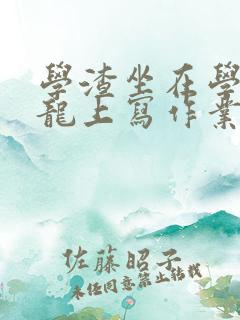 學渣坐在學
龍上寫作業
佐藤昭子
未任同意禁止轉載